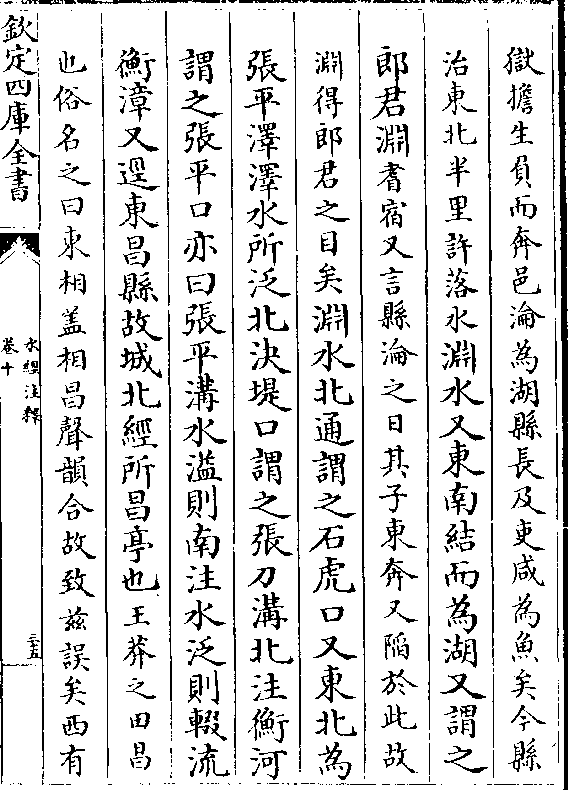 獄擔生負而奔邑淪為湖縣長及吏咸為魚矣今縣
治東北半里許落水淵水又東南結而為湖又謂之
郎君淵耆宿又言縣淪之日其子東奔又陷於此故
淵得郎君之目矣淵水北通謂之石虎口又東北為
張平澤澤水所泛北決堤口謂之張刀溝北注衡河
謂之張平口亦曰張平溝水溢則南注水泛則輟流
衡漳又逕東昌縣故城北經所昌亭也王莽之田昌
也俗名之曰東相盖相昌聲韻合故致兹誤矣西有
欽定四庫全書
水經注釋
卷十
三五